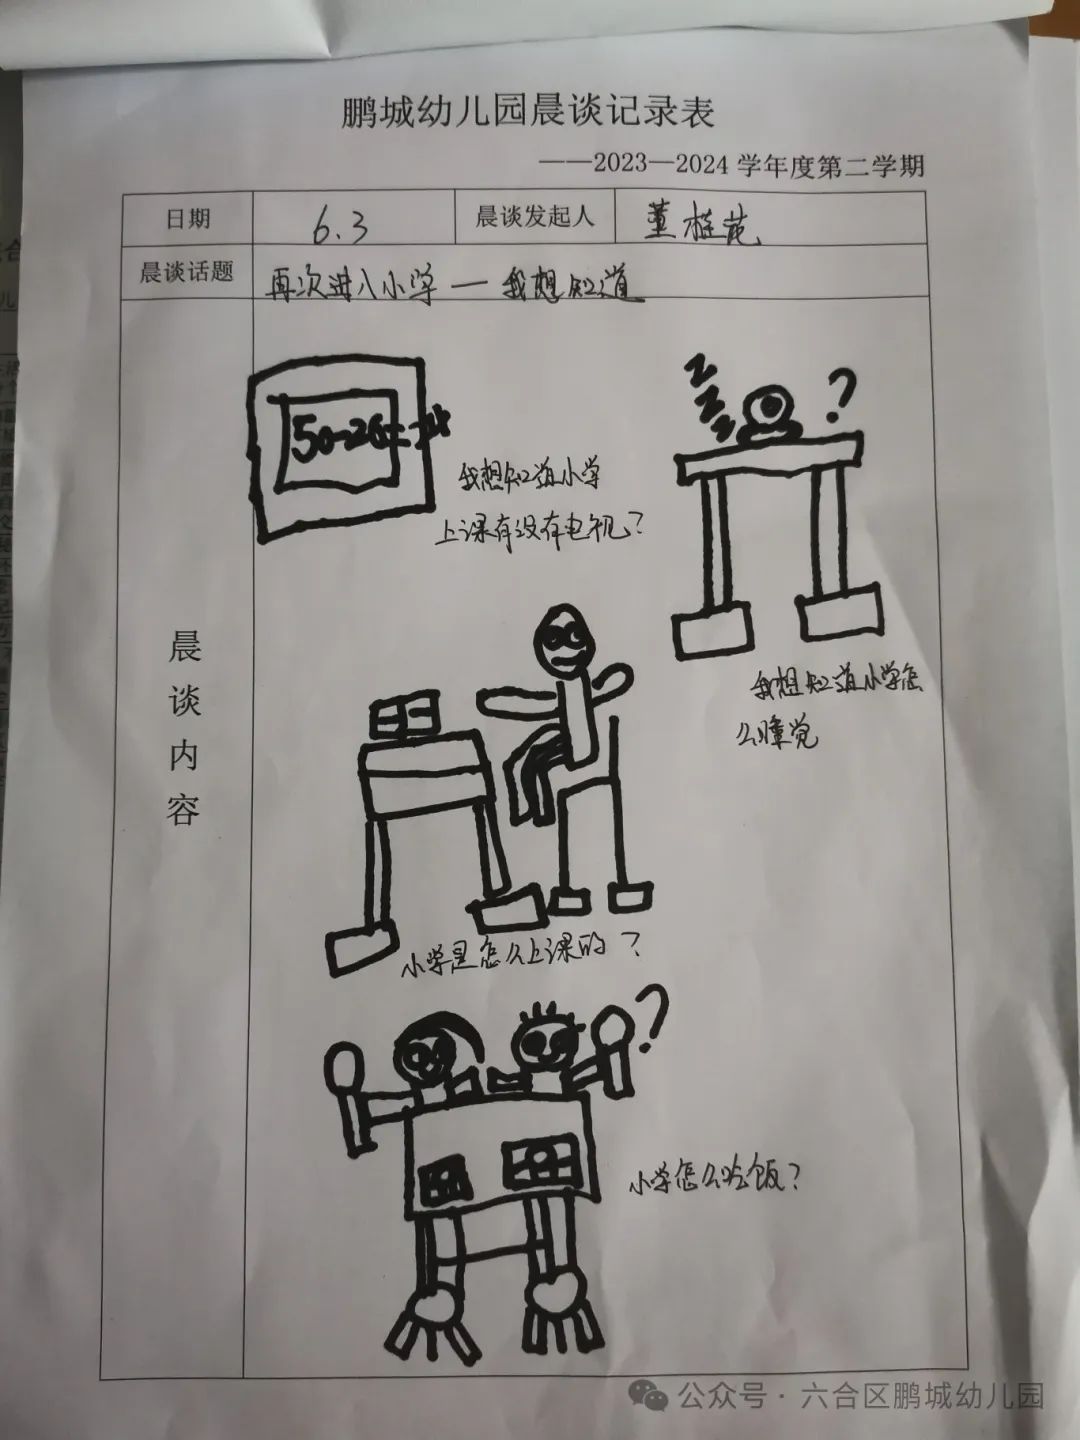 鹏城幼儿园晨谈记录表
——2023—2024 学年度第二学期
日期 6.3 晨谈发起人 董桂花
晨谈话题 再次进入小学 — 我想知道
晨谈内容
我想知道小学
上课有没有电视？
?
我想知道小学怎
么睡觉
小学是怎么上课的？
?
小学怎么吃饭？
公众号 · 六合区鹏城幼儿园